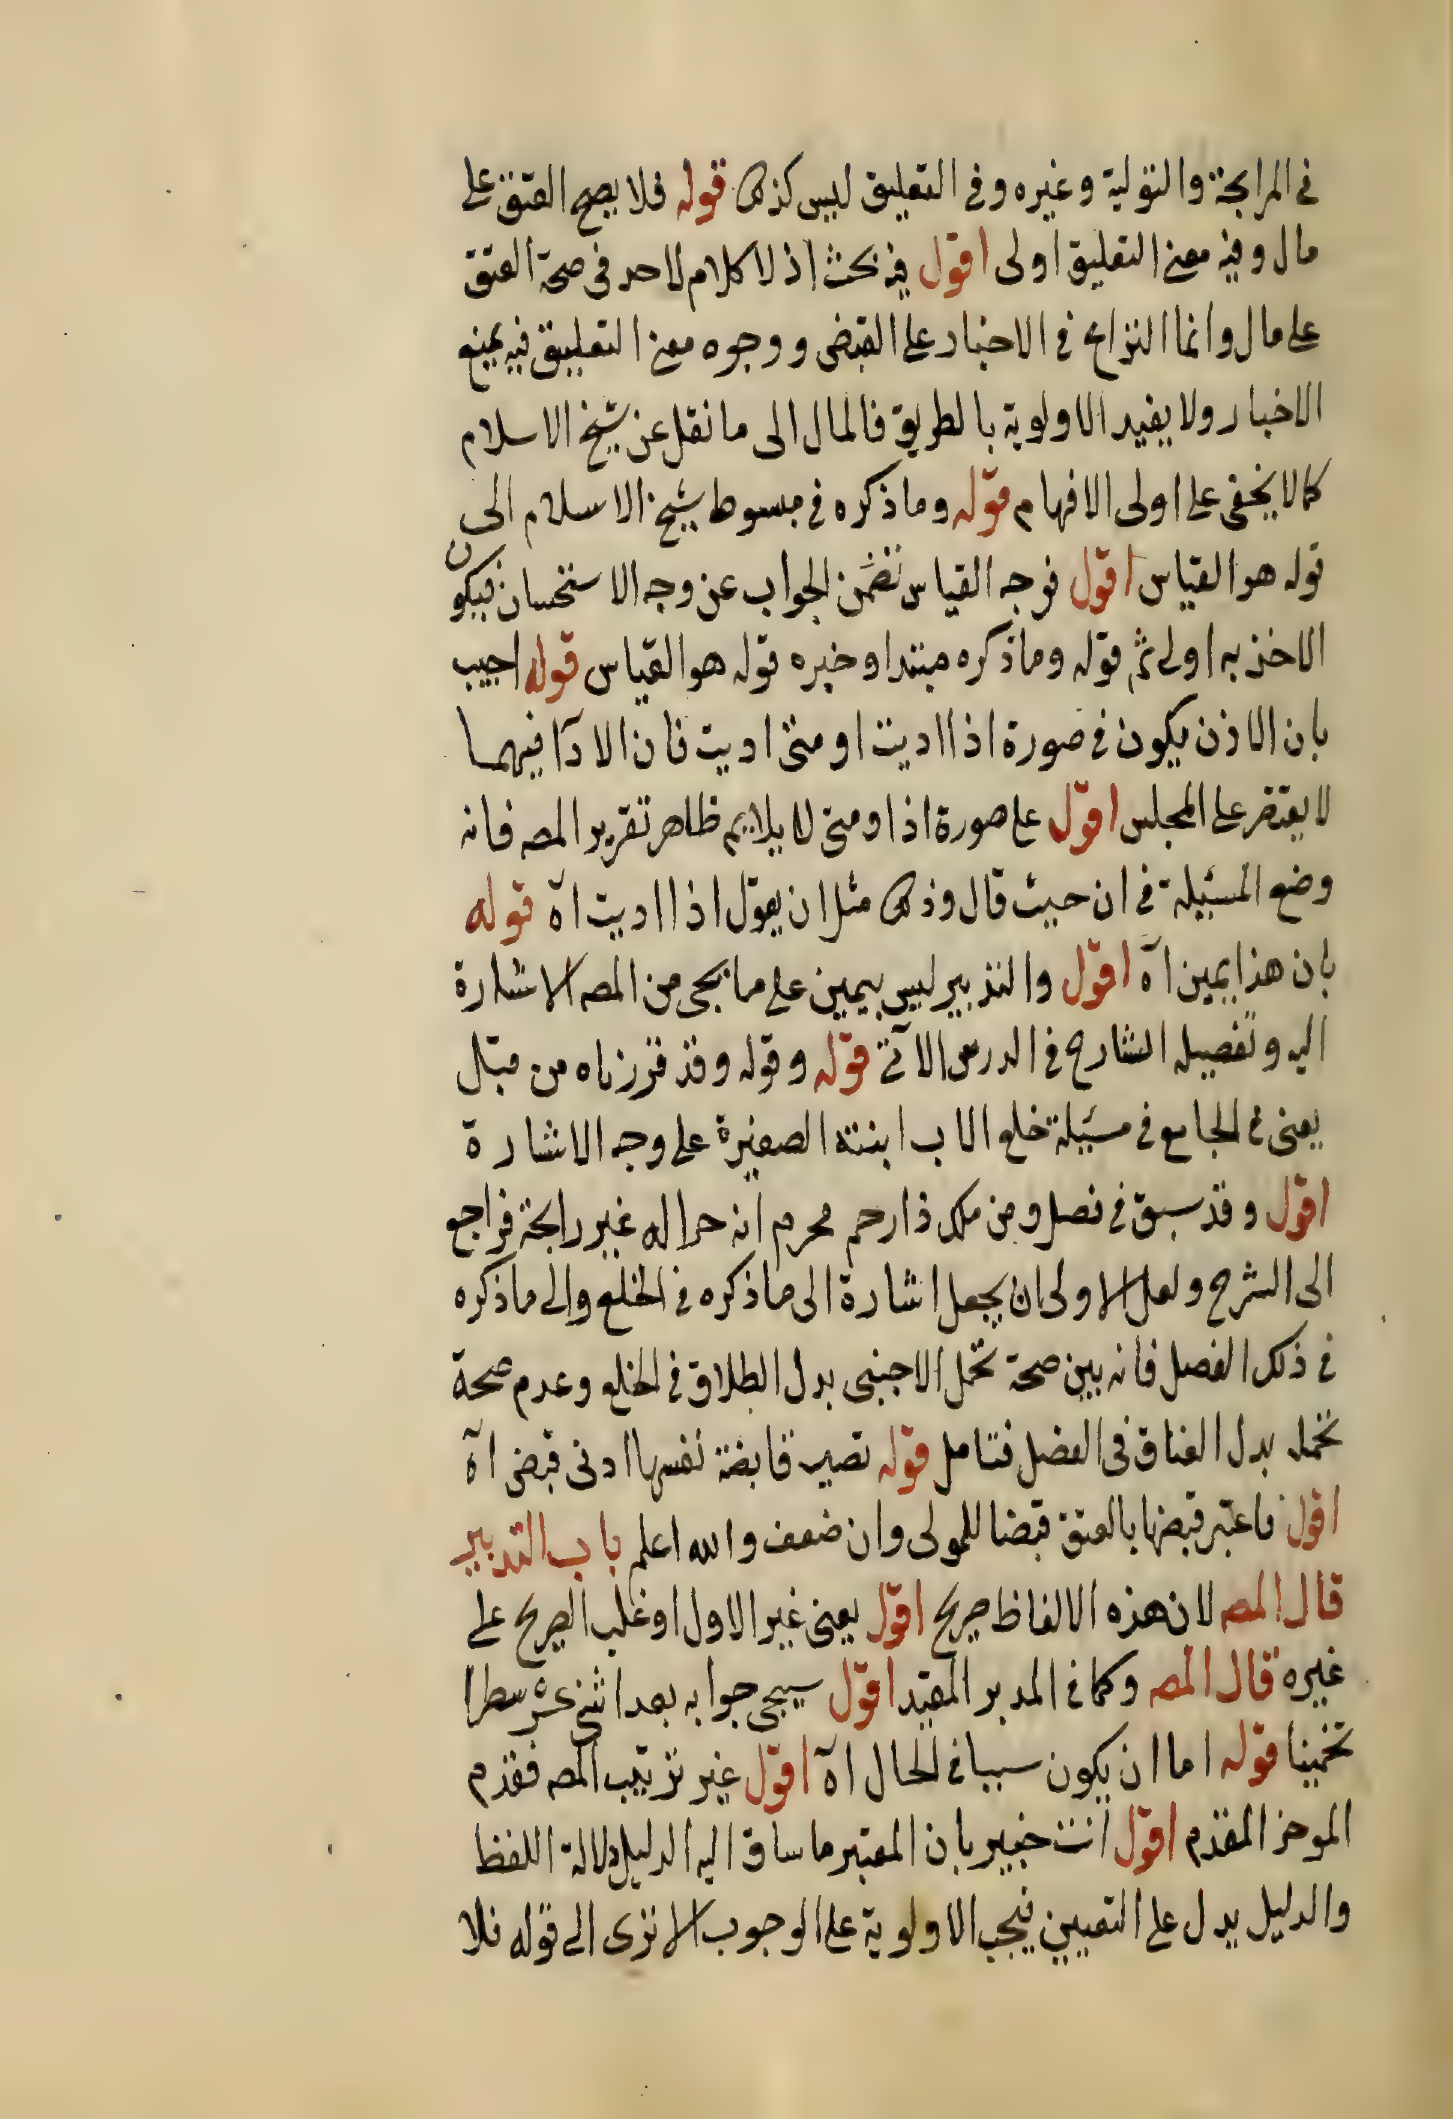 في المرابحة والتولية وغيره وفي التعليق ليس كذلك قوله فلا يصح العتق على
مال وفيه معنى التعليق اولى اقول فيه بحث اذ لا كلام لاحد في صحة العتق
على مال وانما النزاع في الاجبار على القبض ووجوه معنى التعليق فيه يمنع
الاخبار ولا يفيد الاولوية بالطريق فالمال الى ما نقل عن شيخ الاسلام
كما لا يخفى على اولى الافهام قوله وما ذكره في مبسوط شيخ الاسلام الى
قوله هو القياس اقول فوجه القياس تضمن الجواب عن وجه الاستحسان فيكون
الاخذ به اولى ثم قوله وما ذكره مبتدا وخبره قوله هو القياس قوله اجيب
بان الاذن يكون في صورة اذا اديت او متى اديت فان الادآ فيهما
لا يقتصر على المجلس اقول على صورة اذا ومتى لا يلايم ظاهر تقرير المصه فانه
وضع المسئيلة في ان حيث قال وذلك مثل ان يقول اذا اديت اه قوله
بان هذا يمين اه اقول والتدبير ليس بيمين على ما يجى من المصه الاشارة
اليه وتفصيله الشارح في الدرس الاتي قوله وقوله وقد قررناه من قبل
يعنى في الجامع في مسئيلة خلع الاب ابنته الصغيرة على وجه الاشارة
اقول وقد سبق في فصل ومن ملك ذا رحم محرم انه حراله غير رابحة فراجع
الى الشرح ولعل الاولى ان يجعل اشارة الى ما ذكره في الخلع والى ما ذكره
في ذلك الفصل فانه بين صحة تحمل الاجنبى بدل الطلاق في الخلع وعدم صحة
تحمله بدل العتاق في الفصل فتامل قوله تصير قابضة نفسها ادنى قبض اه
اقول فاعتبر قبضها بالعتق قبضا للمولى وان ضعف والله اعلم باب التدبير
قال المصه لان هذه الالفاظ صريح اقول يعنى غير الاول او غلب الصريح على
غيره قال المصه وكما في المدبر المقيد اقول سيجى جوابه بعد اثنى عشر سطرا
تخمينا قوله اما ان يكون سببا في الحال اه اقول غير ترتيب المصه فقدم
الموخر المقدم اقول انت خبير بان المعتبر ما ساق اليه الدليل دلالة اللفظ
والدليل يدل على التعيين فيجب الاولوية على الوجوب الا ترى الى قوله فلا